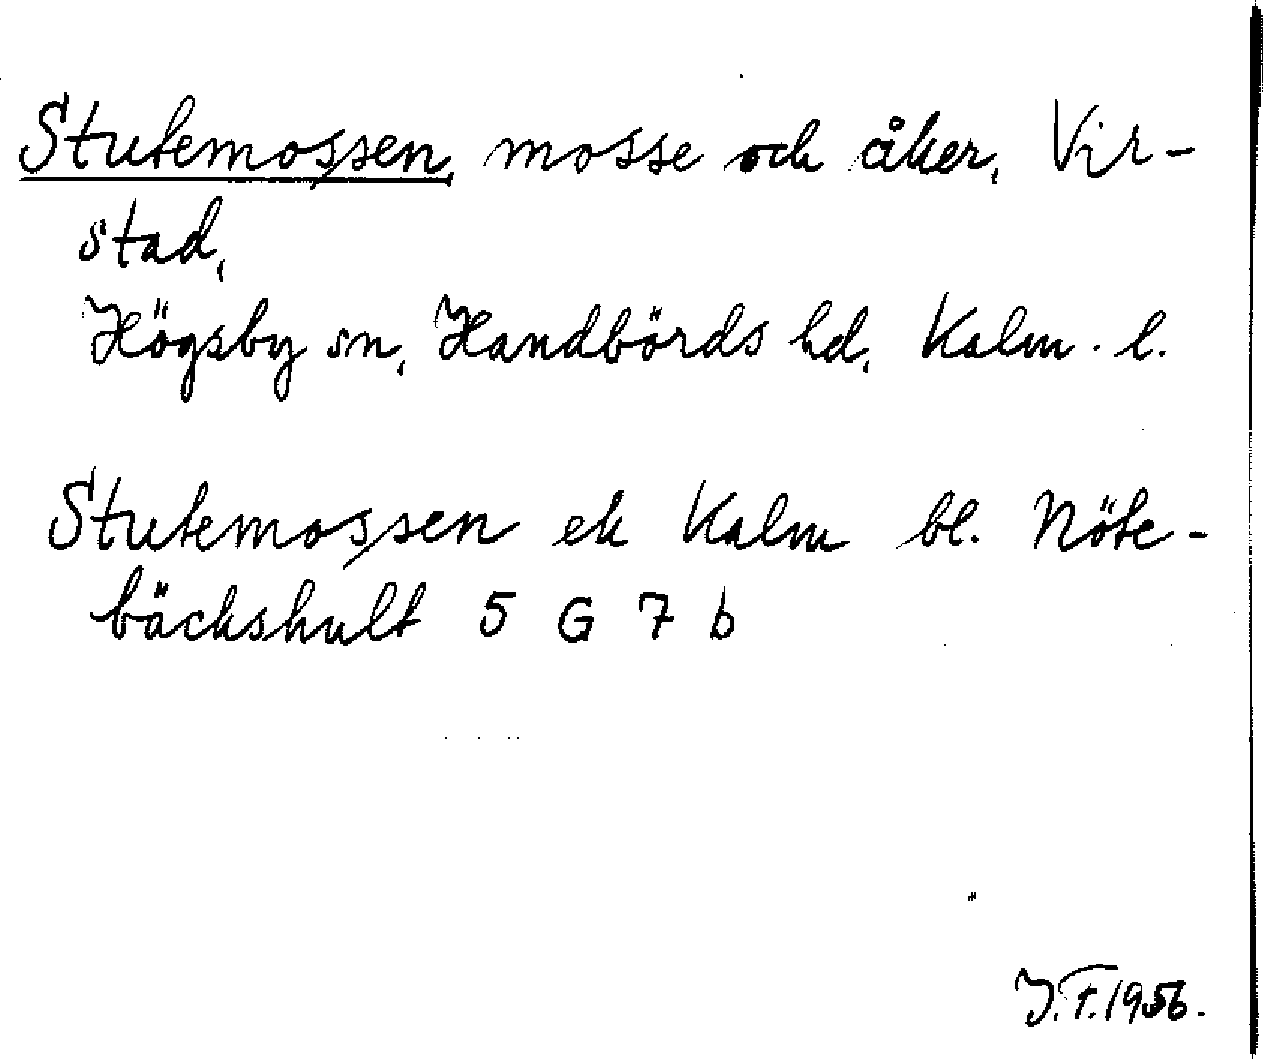 Stutemossen, mosse och åker, Vir-
stad,
Högsby sn, Handbörds hd, Kalm. l.
Stutemossen ek Kalm bl. Nöte-
bäckshult 5 G 7 b
J.F. 1956.